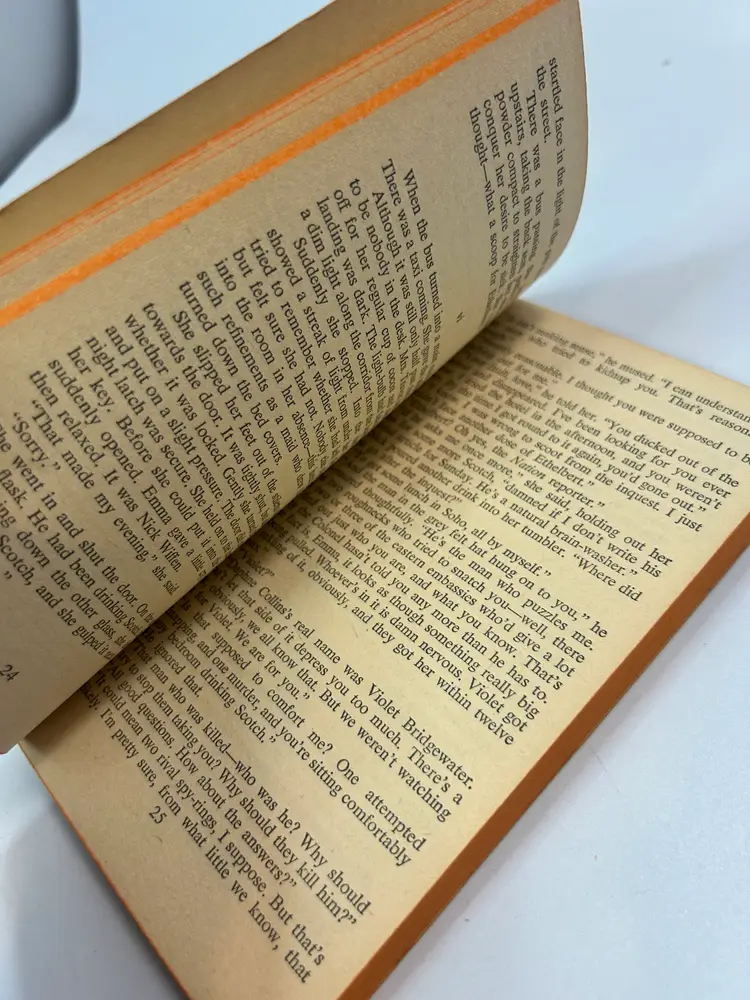 startled face in the light of the
the street.
There was a bus passing. She
upstairs, taking the back seat
powder compact to straighten
conquer her desire to be sick
thought—what a scoop for
When the bus turned into a
There was a taxi coming. She
Although it was still only half
to be nobody in the desk. Mrs.
off for her regular cup of cocoa.
landing was dark. The lightbulb
a dim light along the corridor from
Suddenly she stopped. Into the
showed a streak of light from under
tried to remember whether she had
but felt sure she had not. Nobody
such refinements as a maid who
into the room in her absence—his
turned down the bed covers.
She slipped her feet out of the
towards the door. It was tightly shut.
whether it was locked. Gently she turned
and put on a slight pressure. The door
night latch was secure. She held on to the
her key. Before she could put it into
suddenly opened. Emma gave a little
then relaxed. It was Nick Wilfen.
"That made my evening," she said
"Sorry."
She went in and shut the door. On the
flask. He had been drinking Scotch
down the other glass, she
Scotch, and she gulped it
24
making sense," he mused. "I can understand
who tried to kidnap you. That's reason-
reasonable. I thought you were supposed to be
for me."
love," he told her. "You ducked out of the
disappeared. I've been looking for you ever
the hotel in the afternoon, and you weren't
I got round to it again, you'd gone out."
was wrong to scoot from the inquest. I just
another dose of Ethelbert."
Oh yes, the Nation reporter."
me once more," she said, holding out her
more Scotch, "damned if I don't write his
for Sunday. He's a natural brain-washer."
another drink into her tumbler. "Where did
the inquest?"
lunch in Soho, all by myself."
in the grey felt hat hung on to you," he
thoughtfully. "He's the man who puzzles me.
roughnecks who tried to snatch you—well, there
three of the eastern embassies who'd give a lot
just who you are, and what you know. That's
Colonel hasn't told you any more than he has to.
Emma, it looks as though something really big
pulled. Whoever's in it is damn nervous. Violet got
of it, obviously, and they got her within twelve
Collins's real name was Violet Bridgewater.
let that side of it depress you too much. There's a
obviously, we all know that. But we weren't watching
for Violet. We are for you."
that supposed to comfort me? One attempted
and one murder, and you're sitting comfortably
bedroom drinking Scotch."
ignored that.
man who was killed—who was he? Why should
to stop them taking you? Why should they kill him?"
All good questions. How about the answers?"
It could mean two rival spy-rings, I suppose. But that's
likely. I'm pretty sure, from what little we know, that
25